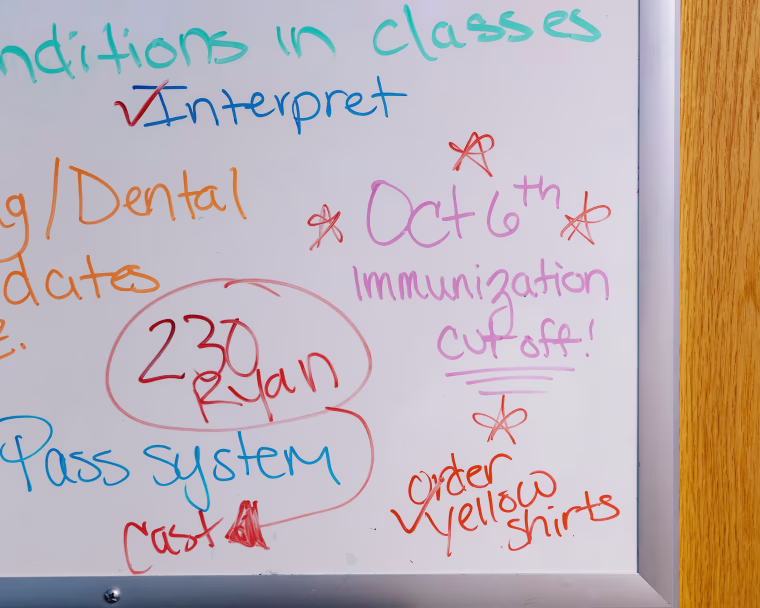 nditions in classes
✓Interpret
g/Dental
dates
e.
230
Ryan
Pass system
cast
Oct 6th
Immunization
cut off!
order
✓yellow
shirts